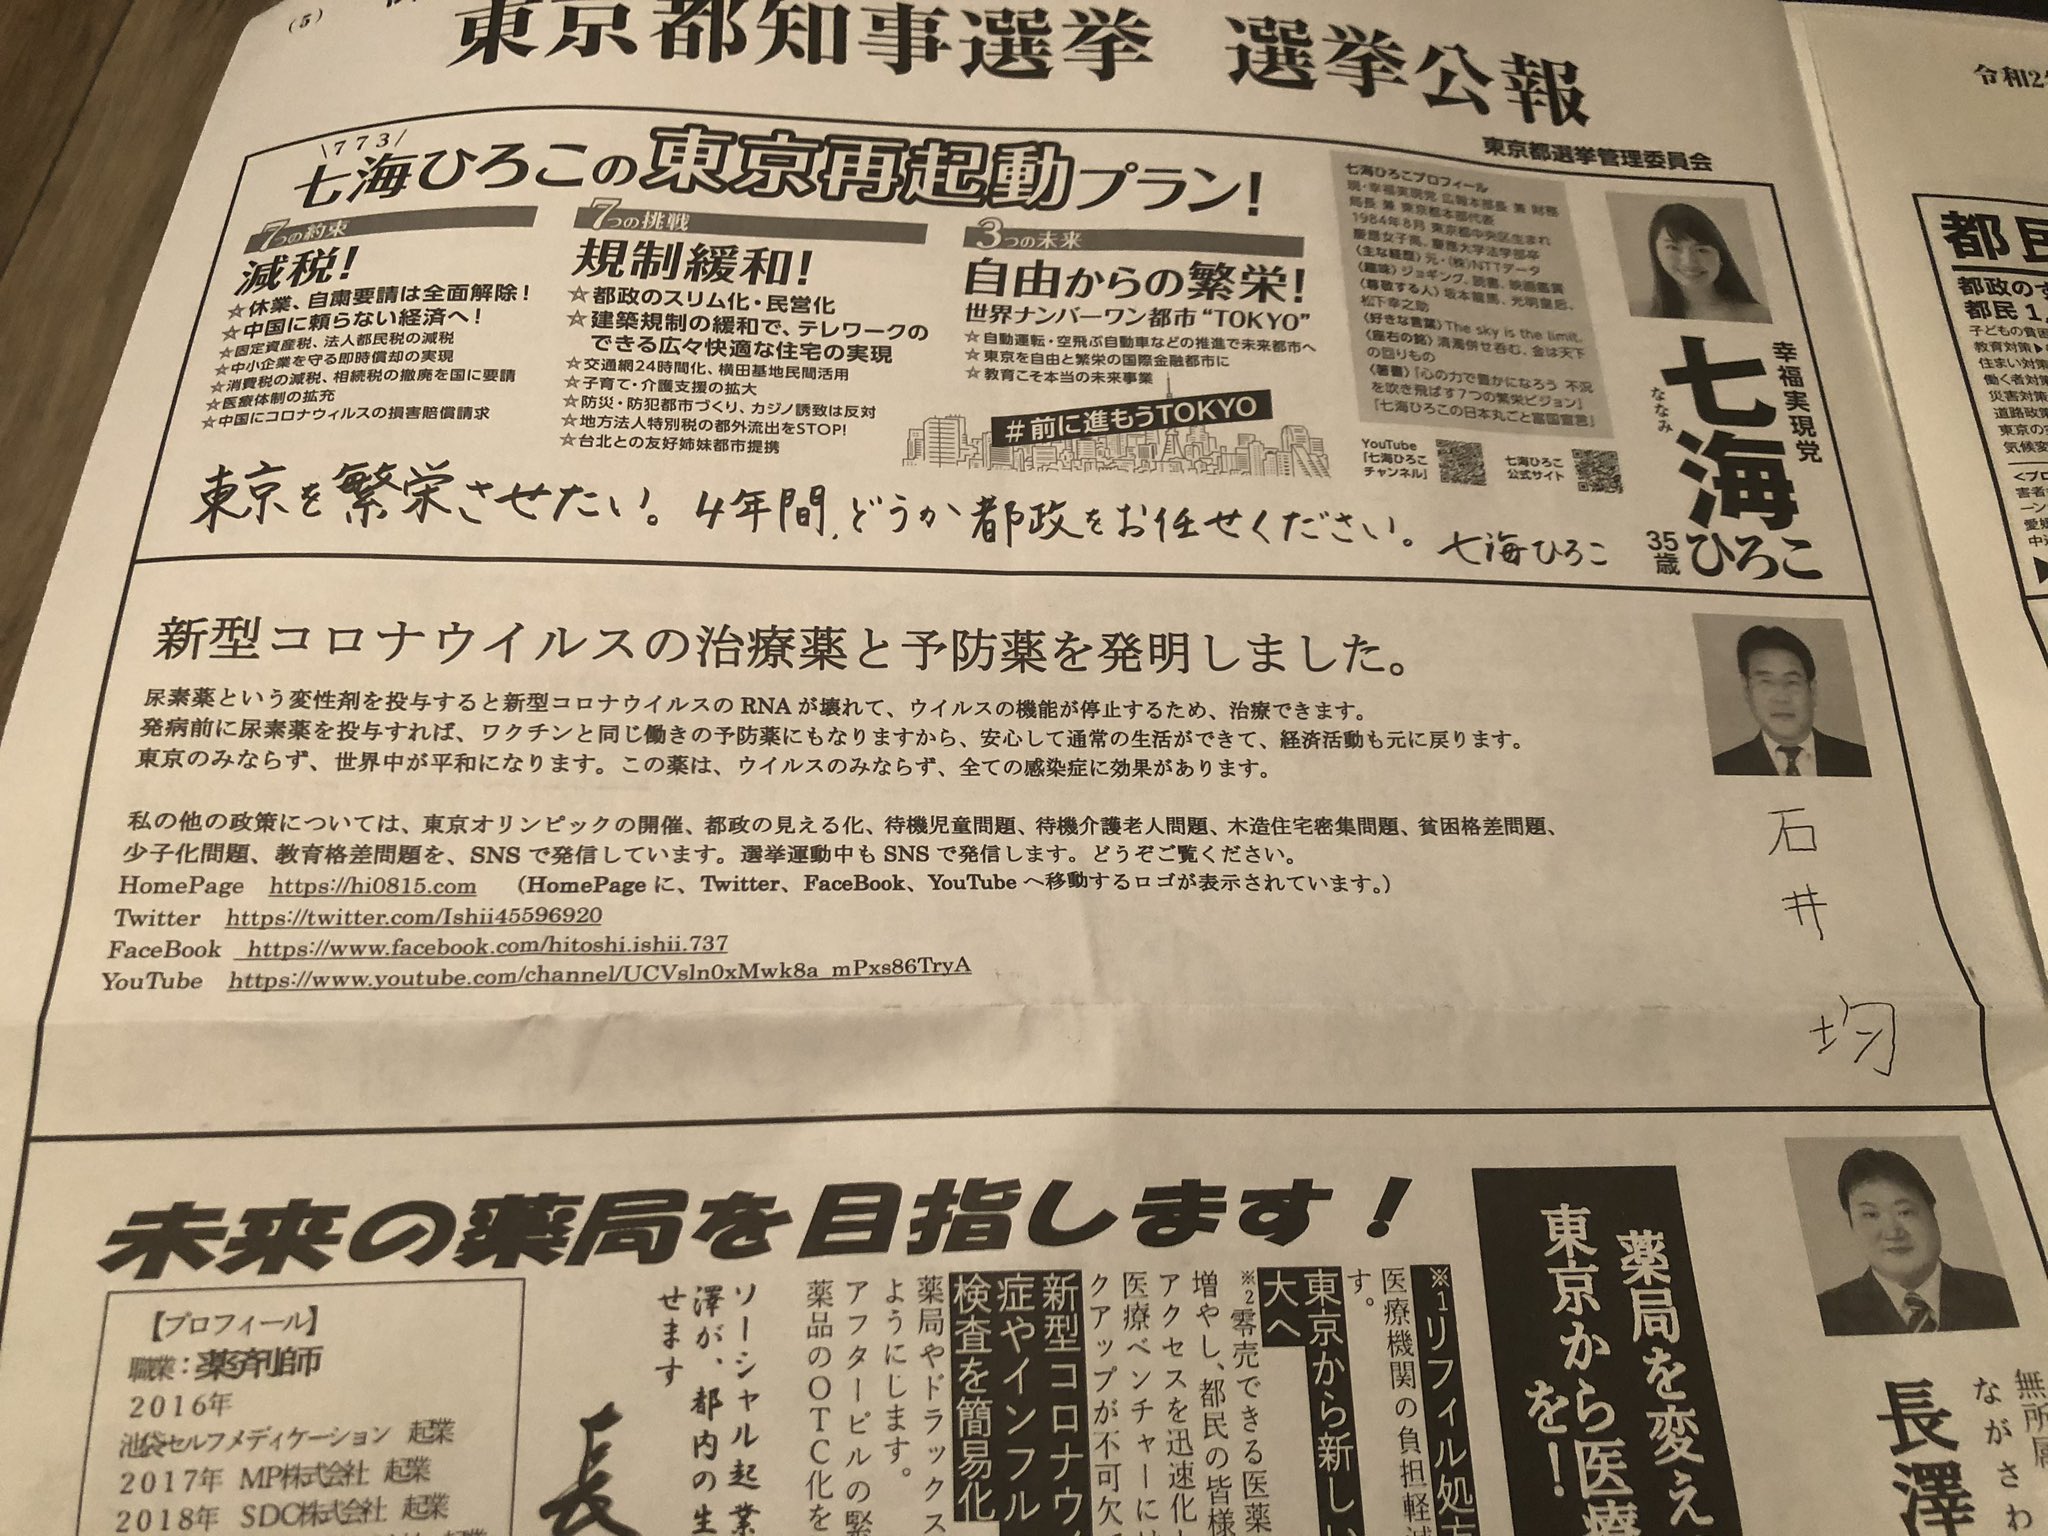 (5)
東京都知事選挙 選挙公報
令和2
東京都選挙管理委員会
\773/
七海ひろこの東京再起動プラン!
7つの約束
減税!
☆休業、自粛要請は全面解除!
☆中国に頼らない経済へ!
☆固定資産税、法人都民税の減税
☆中小企業を守る即時償却の実現
☆消費税の減税、相続税の撤廃を国に要請
☆医療体制の拡充
☆中国にコロナウィルスの損害賠償請求
7つの挑戦
規制緩和!
☆都政のスリム化・民営化
☆建築規制の緩和で、テレワークの
できる広々快適な住宅の実現
☆交通網24時間化、横田基地民間活用
☆子育て・介護支援の拡大
☆防災・防犯都市づくり、カジノ誘致は反対
☆地方法人特別税の都外流出をSTOP!
☆台北との友好姉妹都市提携
3つの未来
自由からの繁栄!
世界ナンバーワン都市“TOKYO”
☆自動運転・空飛ぶ自動車などの推進で未来都市へ
☆東京を自由と繁栄の国際金融都市に
☆教育こそ本当の未来事業
#前に進もうTOKYO
七海ひろこプロフィール
現・幸福実現党 広報本部長 兼 財務
局長 兼 東京都本部代表
1984年8月 東京都中央区生まれ
慶應女子高、慶應大学法学部卒
〈主な経歴〉元・(株)NTTデータ
〈趣味〉ジョギング、読書、映画鑑賞
〈尊敬する人〉坂本龍馬、光明皇后、
松下幸之助
〈好きな言葉〉The sky is the limit.
〈座右の銘〉清濁併せ呑む、金は天下
の回りもの
〈著書〉「心の力で豊かになろう 不況
を吹き飛ばす7つの繁栄ビジョン」
「七海ひろこの日本丸ごと富国宣言」
YouTube
「七海ひろこ
チャンネル」
七海ひろこ
公式サイト
幸福実現党
七海ひろこ
ななみ
35歳
東京を繁栄させたい。4年間、どうか都政をお任せください。 七海ひろこ
新型コロナウイルスの治療薬と予防薬を発明しました。
尿素薬という変性剤を投与すると新型コロナウイルスのRNAが壊れて、ウイルスの機能が停止するため、治療できます。
発病前に尿素薬を投与すれば、ワクチンと同じ働きの予防薬にもなりますから、安心して通常の生活ができて、経済活動も元に戻ります。
東京のみならず、世界中が平和になります。この薬は、ウイルスのみならず、全ての感染症に効果があります。
私の他の政策については、東京オリンピックの開催、都政の見える化、待機児童問題、待機介護老人問題、木造住宅密集問題、貧困格差問題、
少子化問題、教育格差問題を、SNSで発信しています。選挙運動中もSNSで発信します。どうぞご覧ください。
HomePage https://hi0815.com (HomePageに、Twitter、FaceBook、YouTubeへ移動するロゴが表示されています。)
Twitter https://twitter.com/Ishii45596920
FaceBook https://www.facebook.com/hitoshi.ishii.737
YouTube https://www.youtube.com/channel/UCVsln0xMwk8a_mPxs86TryA
石井 均
未来の薬局を目指します!
薬局を変え
東京から医療
を!
※1リフィル処方
医療機関の負担軽減
す。
東京から新しい
大へ
※2零売できる医薬
増やし、都民の皆様
アクセスを迅速化し
医療ベンチャーには
クアップが不可欠で
新型コロナウイ
症やインフル
検査を簡易化
薬局やドラックス
ようにします。
アフターピルの緊
薬品のOTC化を
ソーシャル起業
澤が、都内の生
せます
長
【プロフィール】
職業:薬剤師
2016年
池袋セルフメディケーション 起業
2017年 MP株式会社 起業
2018年 SDC株式会社 起業
無所属
ながさわ
長澤
都民
都政の
都民1,
子どもの貧困
教育対策▶
住まい対策
働く者対策
災害対策
道路政策
東京の
気候変
<プロ
害者
ーン
愛媛
中